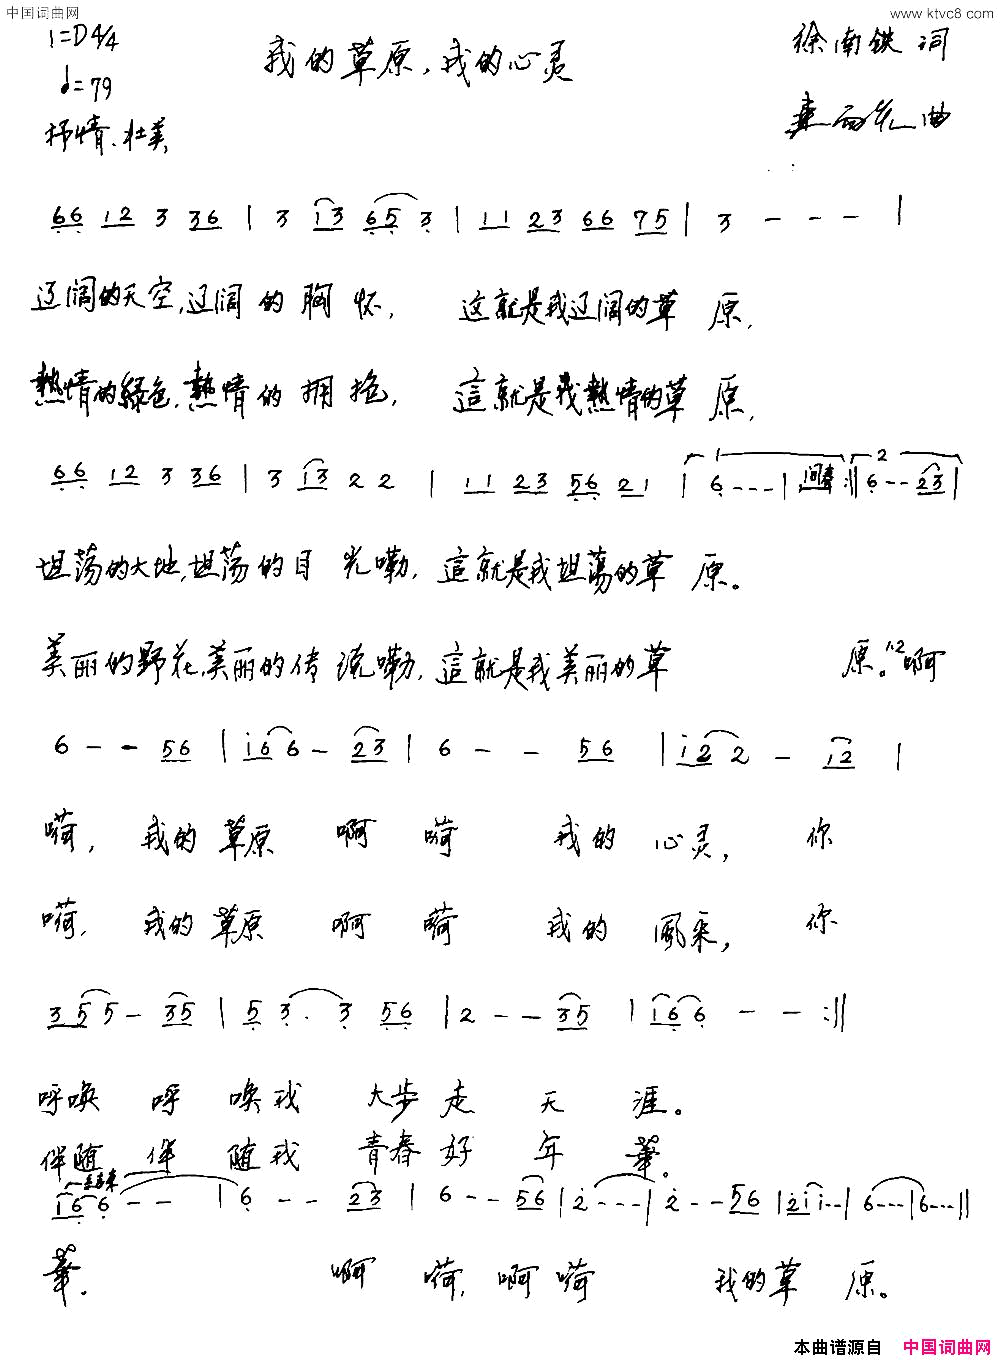 中国词曲网
www.ktvc8.com
1=D 4/4
我的草原，我的心灵
徐南铁 词
♩=79
曲
抒情、壮美
66 12 3 36 | 3 13 65 3 | 11 23 66 75 | 3 - - - |
辽阔的天空,辽阔的胸怀, 这就是我辽阔的草原,
熱情的綠色,熱情的拥抱, 這就是我熱情的草原,
66 12 3 36 | 3 13 2 2 | 11 23 56 21 | 1 6 - - - | 间奏 :|| 2 6 - - 23 |
坦荡的大地,坦荡的目光嘞, 這就是我坦荡的草原。
美丽的野花,美丽的传说嘞, 這就是我美丽的草原。1.2啊
6 - - 56 | i66 - 23 | 6 - - 56 | i22 - 12 |
嗬, 我的草原 啊嗬 我的心灵, 你
嗬, 我的草原 啊嗬 我的風采, 你
355 - 35 | 53. 3 56 | 2 - - 35 | 166 - - :||
呼唤呼唤我大步走天涯。
伴随伴随我青春好年華。
166 - - | 6 - - 23 | 6 - - 56 | 2 - - - | 2 - - 56 | 2ii - - | 6 - - - | 6 - - - ||
華. 啊嗬, 啊嗬 我的草原。
本曲谱源自 中国词曲网